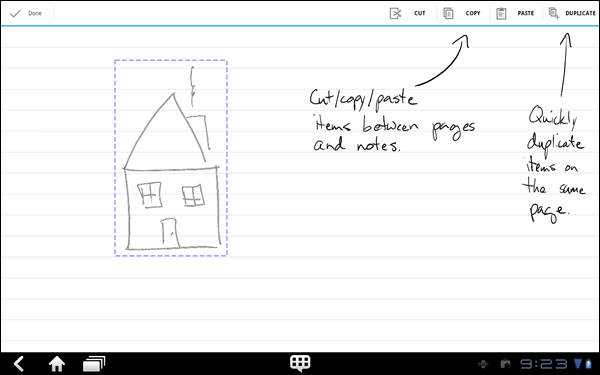 Done CUT COPY PASTE DUPLICATE
Cut/copy/paste
items between pages
and notes.
Quickly
duplicate
items on
the same
page.
9:23